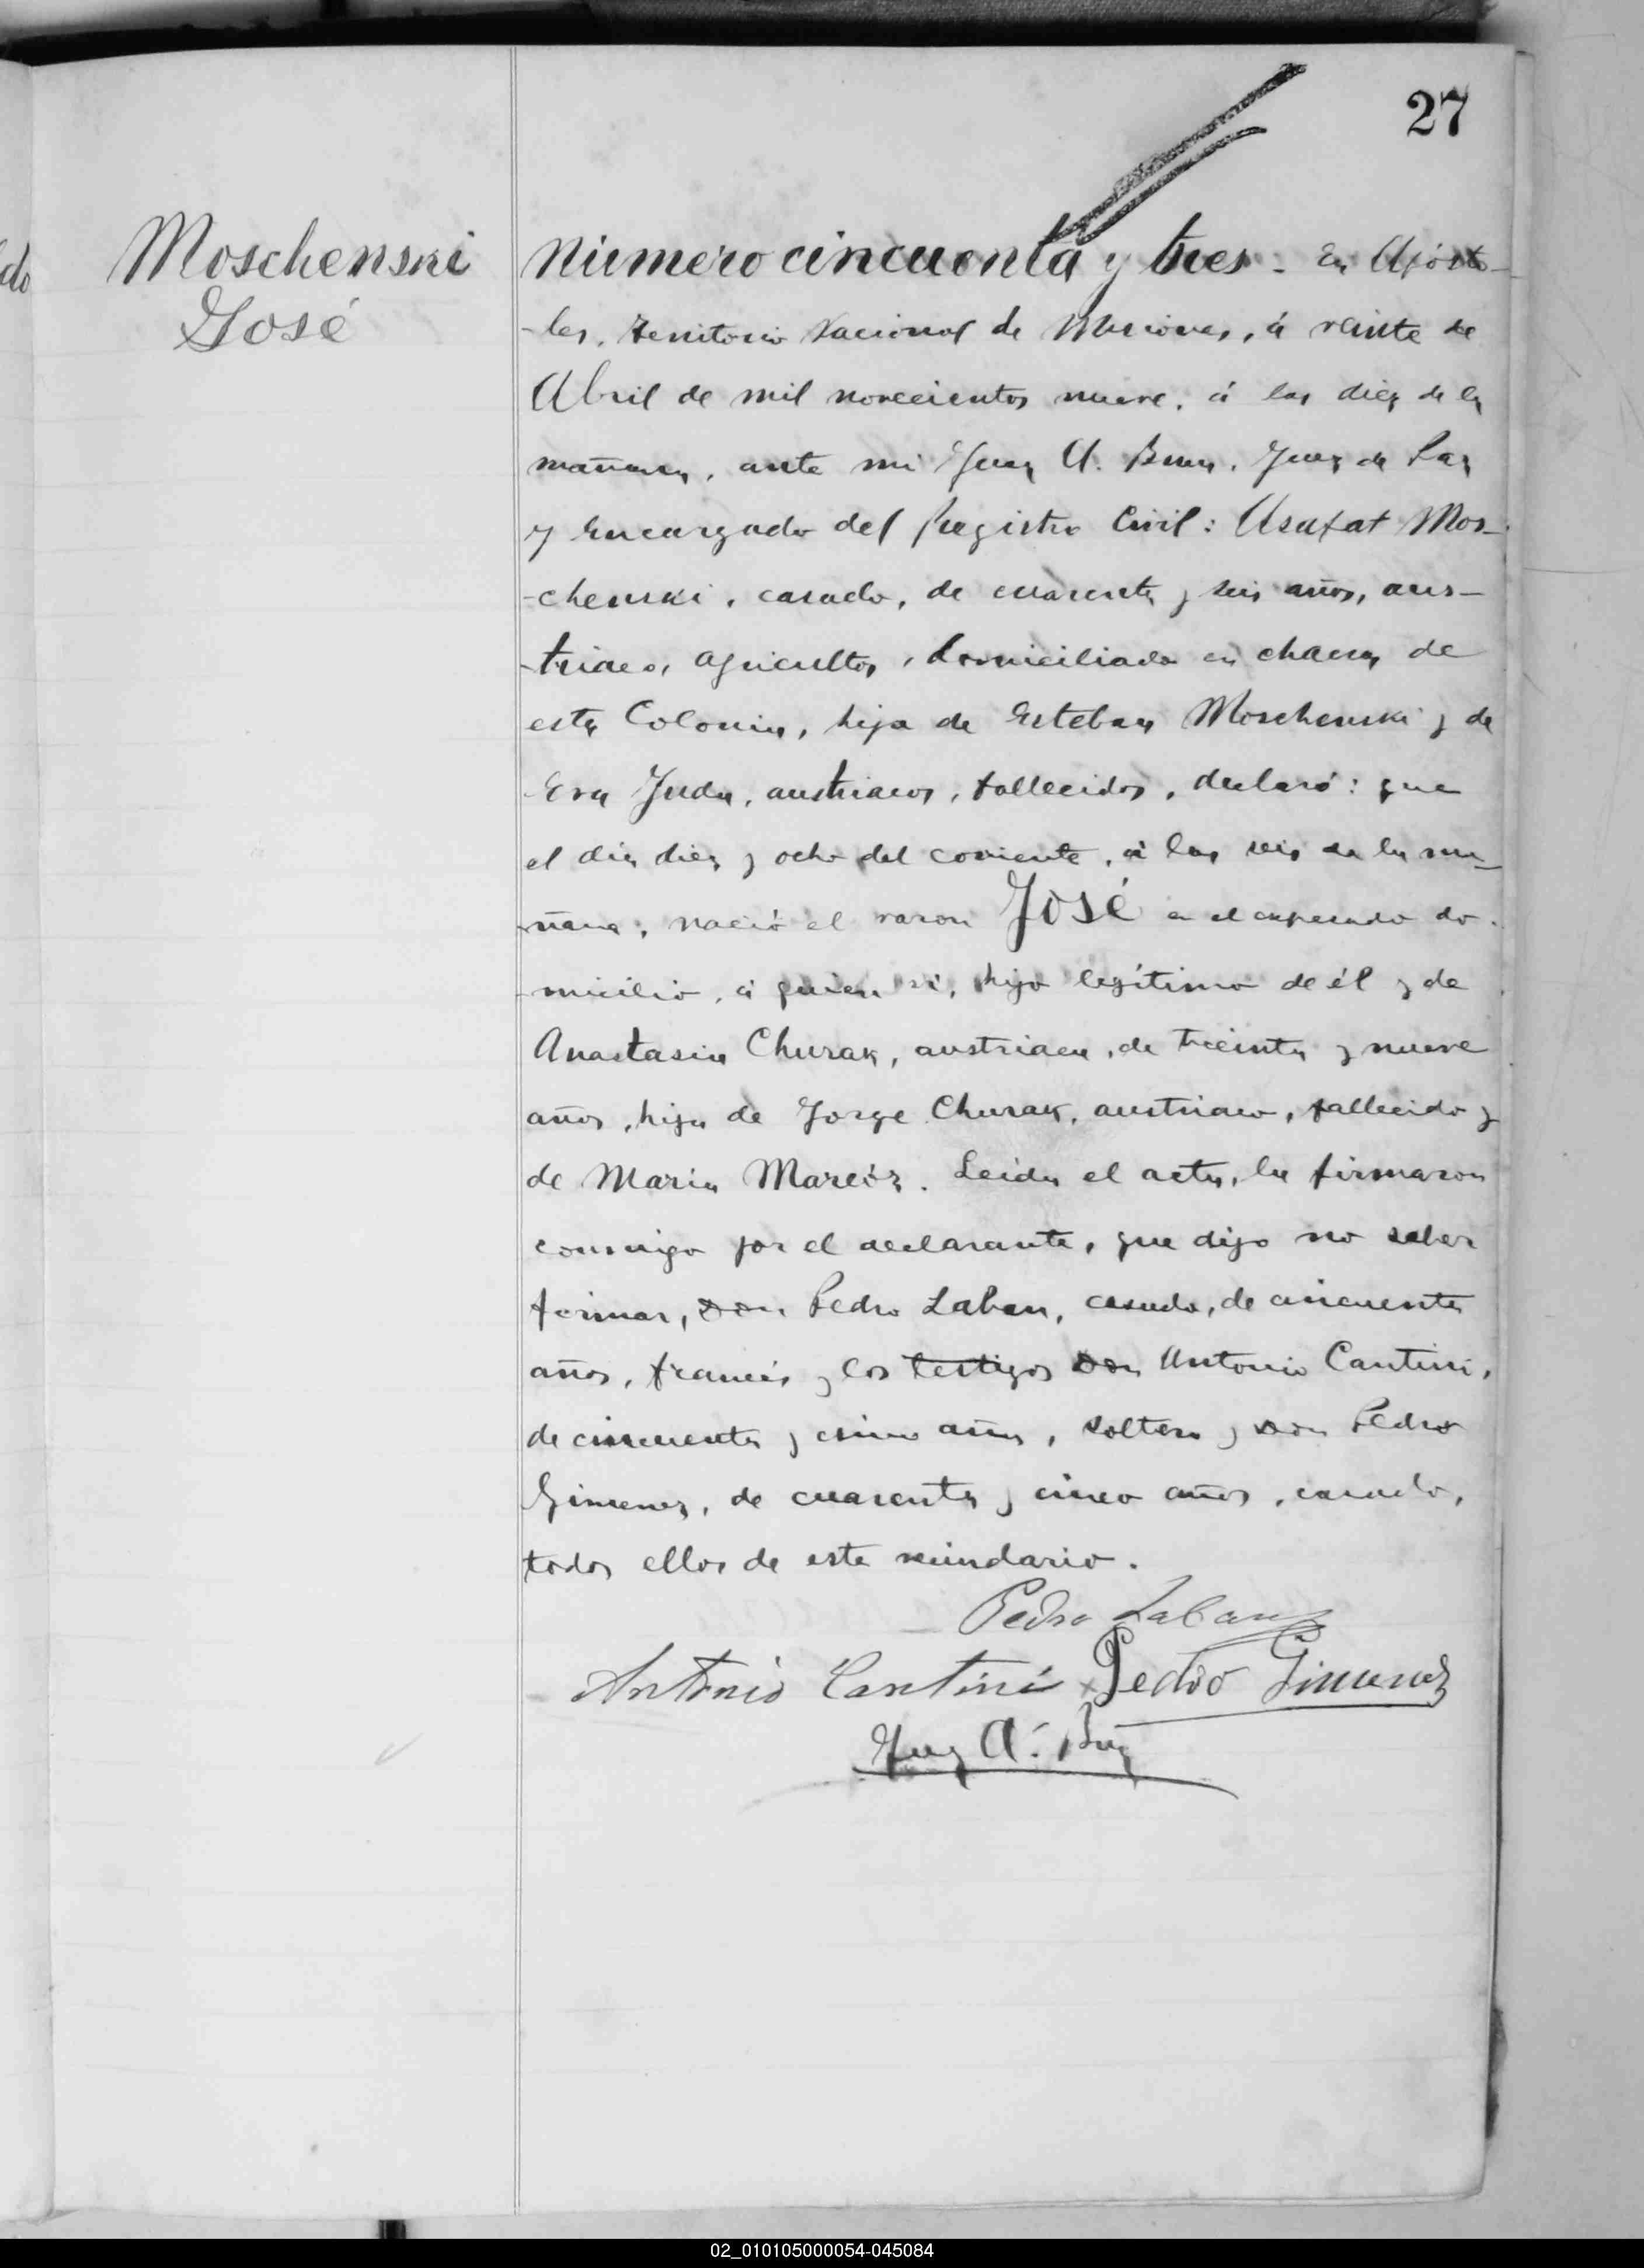 27
Moschenski
José
Número cincuenta y tres. En Apósto-
-les, Territorio Nacional de Misiones, á veinte de
Abril de mil novecientos nueve, á las diez de la
mañana, ante mi Juan A. Juez de Paz
y Encargado del Registro Civil: Asafat Mos-
-chenski, casado, de cuarenta y seis años, aus-
-triaco, agricultor, domiciliado en chacra de
esta Colonia, hijo de Esteban Moschenski y de
Eva Juda, austriacos, fallecidos, declaró: que
el dia diez y ocho del corriente, á las seis de la ma-
-ñana, nació el varon José en el expresado do-
-micilio, á quien ví, hijo legítimo de él y de
Anastasia Churak, austriaca, de treinta y nueve
años, hija de Jorge Churak, austriaco, fallecido y
de Maria Marcóz. Leida el acta, la firmaron
conmigo por el declarante, que dijo no saber
firmar, Don Pedro Laban, casado, de cincuenta
años, francés y los testigos Don Antonio Cantini,
de cincuenta y cinco años, soltero y Don Pedro
Gimenez, de cuarenta y cinco años, casado,
todos ellos de este vecindario.
Pedro Laban
Antonio Cantini Pedro Gimenez
Juan A.
02_010105000054-045084